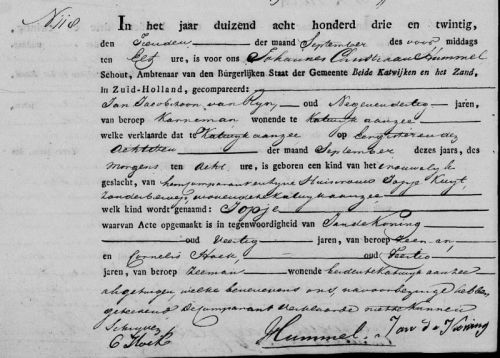 N 118.
In het jaar duizend acht honderd drie en twintig,
den Tienden der maand September des voor middags
ten Elf ure, is voor ons Johannes Hummel
Schout, Ambtenaar van den Burgerlijken Staat der Gemeente Beide Katwijken en het Zand,
in Zuid-Holland, gecompareerd:
Jan Jacobszoon van Ryn, oud Negenendertig jaren,
van beroep wonende te Katwyk aanzee
welke verklaarde dat te Katwyk aanzee op
Achtsten der maand September dezes jaars, des
morgens ten Acht ure, is geboren een kind van het vrouwelyk
geslacht, van hem Comparant en zyne Huisvrouw Kuyt,
zonder beroep, wonende te Katwyk aanzee
welk kind wordt genaamd: Jopje
waarvan Acte opgemaakt is in tegenwoordigheid van Jan de Koning
oud Veertig jaren, van beroep Zeeman,
en Cornelis Hoek oud Veertig
jaren, van beroep Zeeman wonende beide te Katwyk aan zee
welke benevens ons, na voorlezing hebben
getekend De Comparant verklaarde niet te kunnen
Schryven
C Hoek Hummel. Jan de Koning